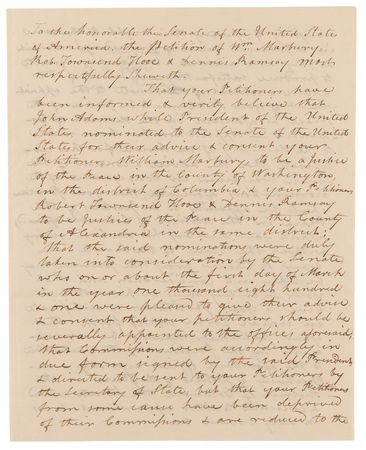 To the honorable the Senate of the United State
of America, the Petition of Wm. Marbury,
Rob. Townsend Hooe & Dennis Ramsay most
respectfully Sheweth
That your Petitioners have
been informed & verily believe that
John Adams, while President of the United
States, nominated to the Senate of the United
States, for their advice & consent your
Petitioners, William Marbury, to be a justice
of the Peace in the County of Washington,
in the district of Columbia, & your Petitioners
Robert Townsend Hooe & Dennis Ramsay
to be Justices of the Peace in the County
of Alexandria in the same district;
That the said nominations were duly
taken into consideration by the Senate,
who on or about the first day of March
in the year one thousand eight hundred
& one were pleased to give their advice
& consent that your petitioners should be
severally appointed to the offices aforesaid,
that Commissions were accordingly in
due form signed by the said President,
& directed to be sent to your Petitioners by
the Secretary of State, but that your Petitioners
from some cause have been deprived
of their Commissions & are reduced to the